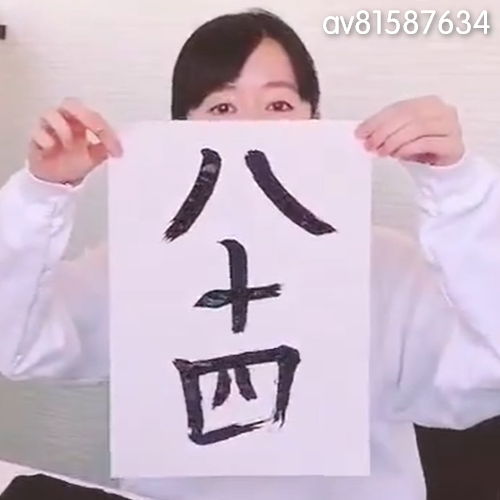 av81587634
八
十
四